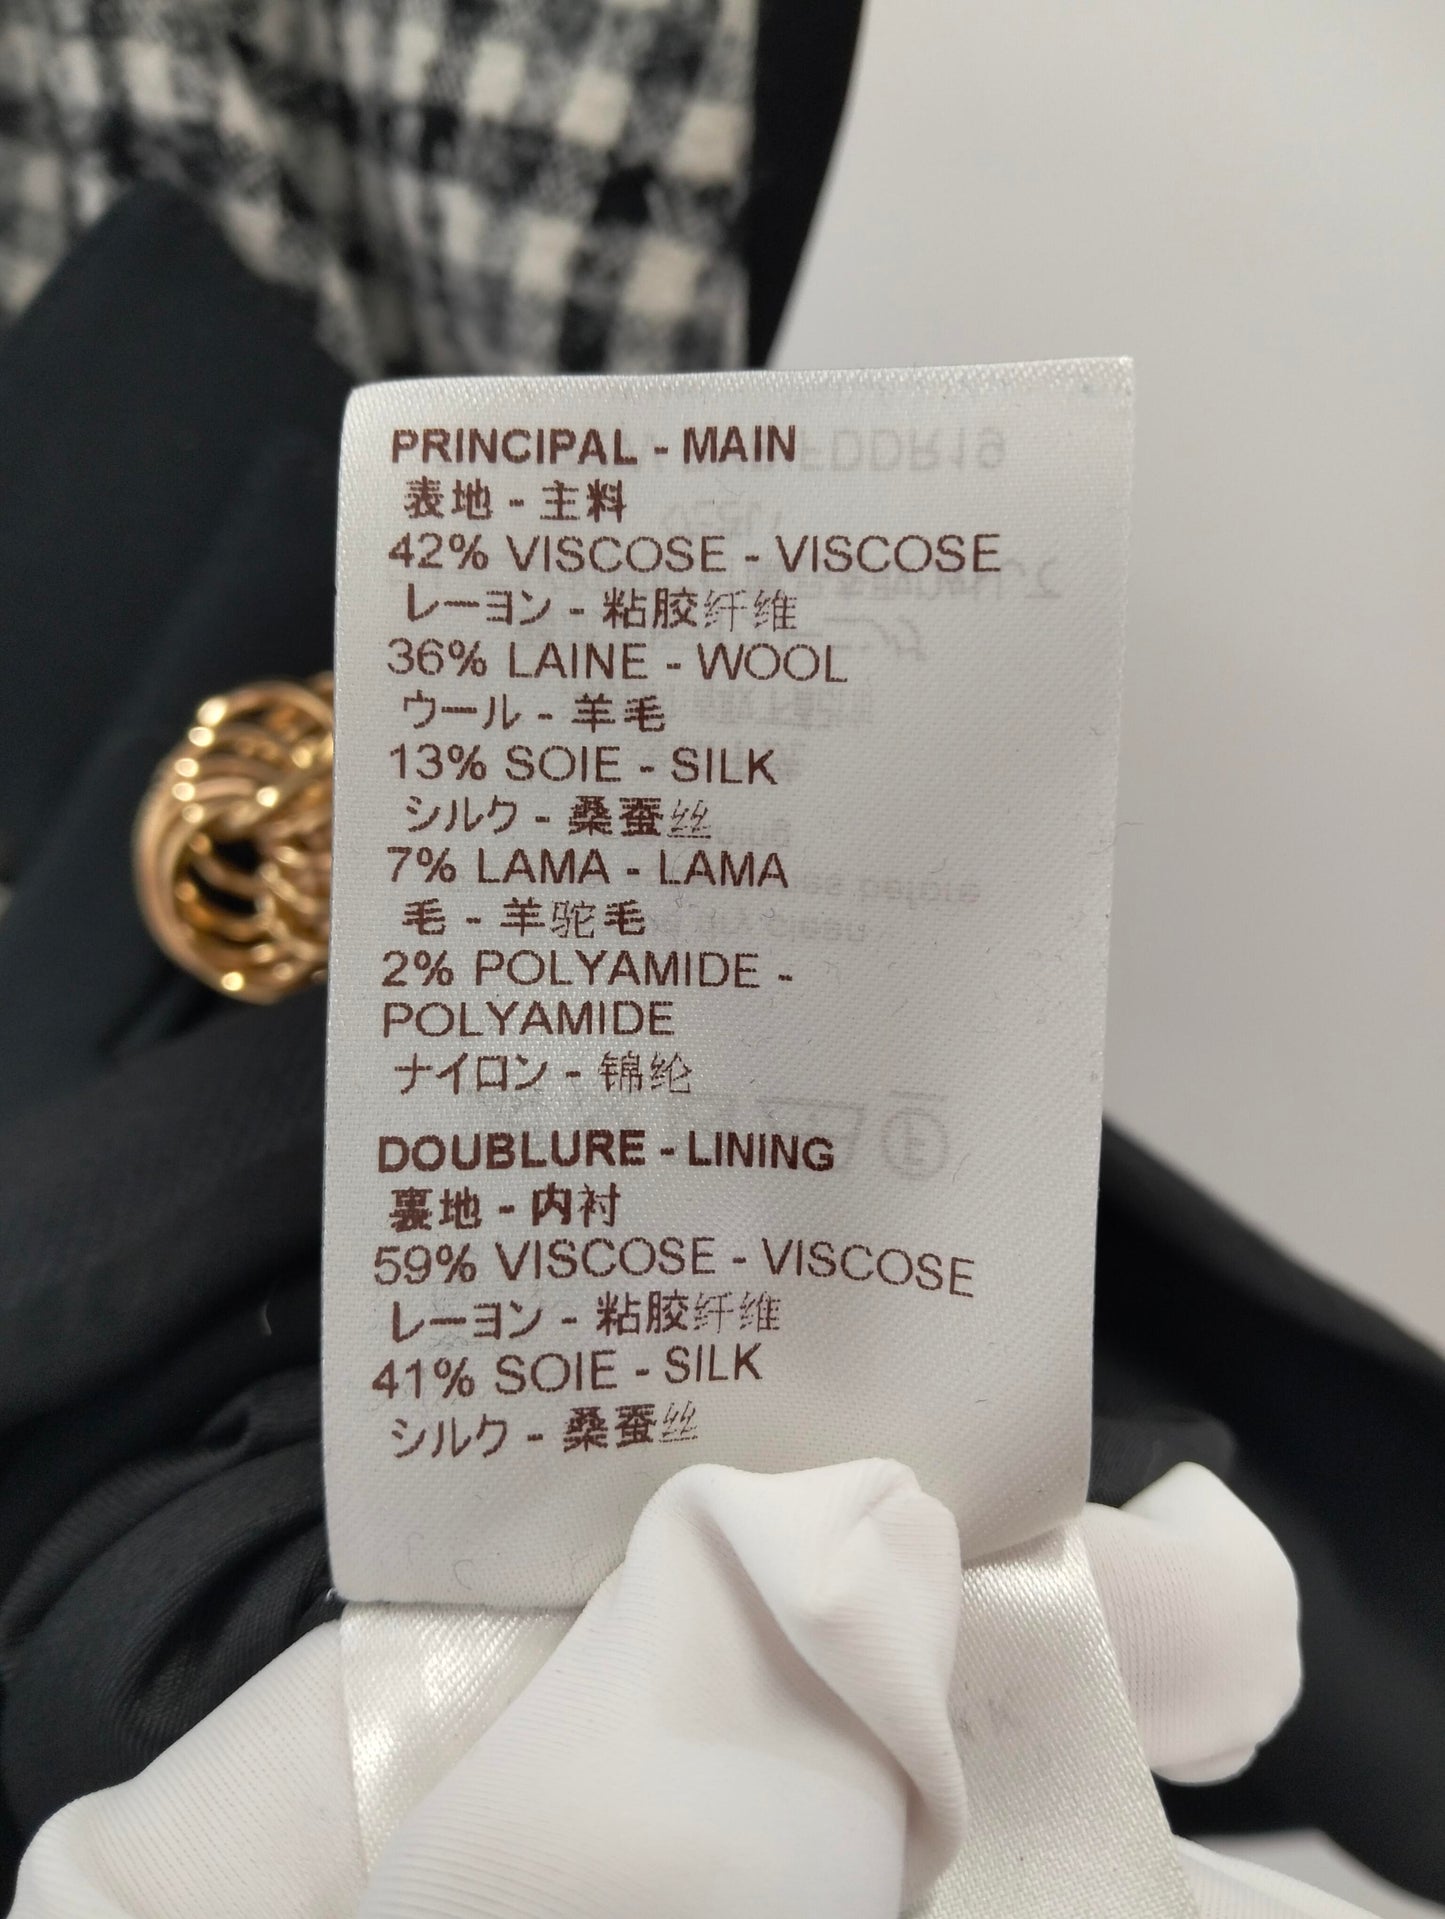 PRINCIPAL - MAIN
表地 - 主料
42% VISCOSE - VISCOSE
レーヨン - 粘胶纤维
36% LAINE - WOOL
ウール - 羊毛
13% SOIE - SILK
シルク - 桑蚕丝
7% LAMA - LAMA
毛 - 羊驼毛
2% POLYAMIDE -
POLYAMIDE
ナイロン - 锦纶
DOUBLURE - LINING
裏地 - 内衬
59% VISCOSE - VISCOSE
レーヨン - 粘胶纤维
41% SOIE - SILK
シルク - 桑蚕丝